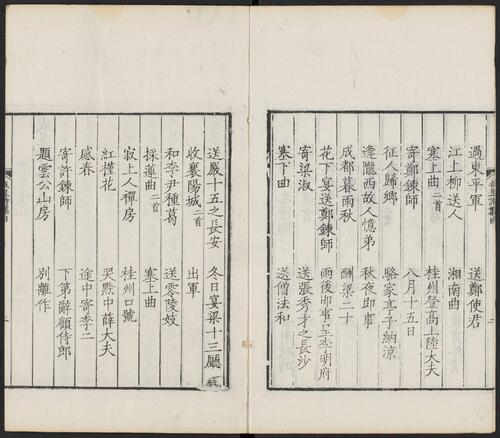 過東平軍　送鄭使君
江上柳送人　湘南曲
塞上曲二首　桂州登高上陸大夫
寄鄭鍊師　八月十五日
征人歸鄉　駱家亭子納涼
逢隴西故人憶弟　秋夜即事
成都暮雨秋　酬梁二十
花下宴送鄭鍊師　雨後即事呈李明府
寄梁淑　送張秀才之長沙
塞下曲　送僧法和
送嚴十五之長安　冬日宴梁十三廳
收襄陽城二首　出軍
和李尹種葛　送零陵妓
採蓮曲二首　塞上曲
寂上人禪房　桂州口號
紅槿花　哭黔中薛大夫
感春　途中寄李二
寄許鍊師　下第辭顧侍郎
題雲公山房　別離作